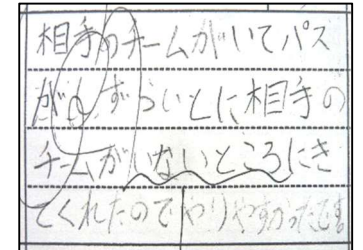 相手のチームがいてパス
がしずらいとに相手の
チームがいないところにき
てくれたのでやりやすかったです。